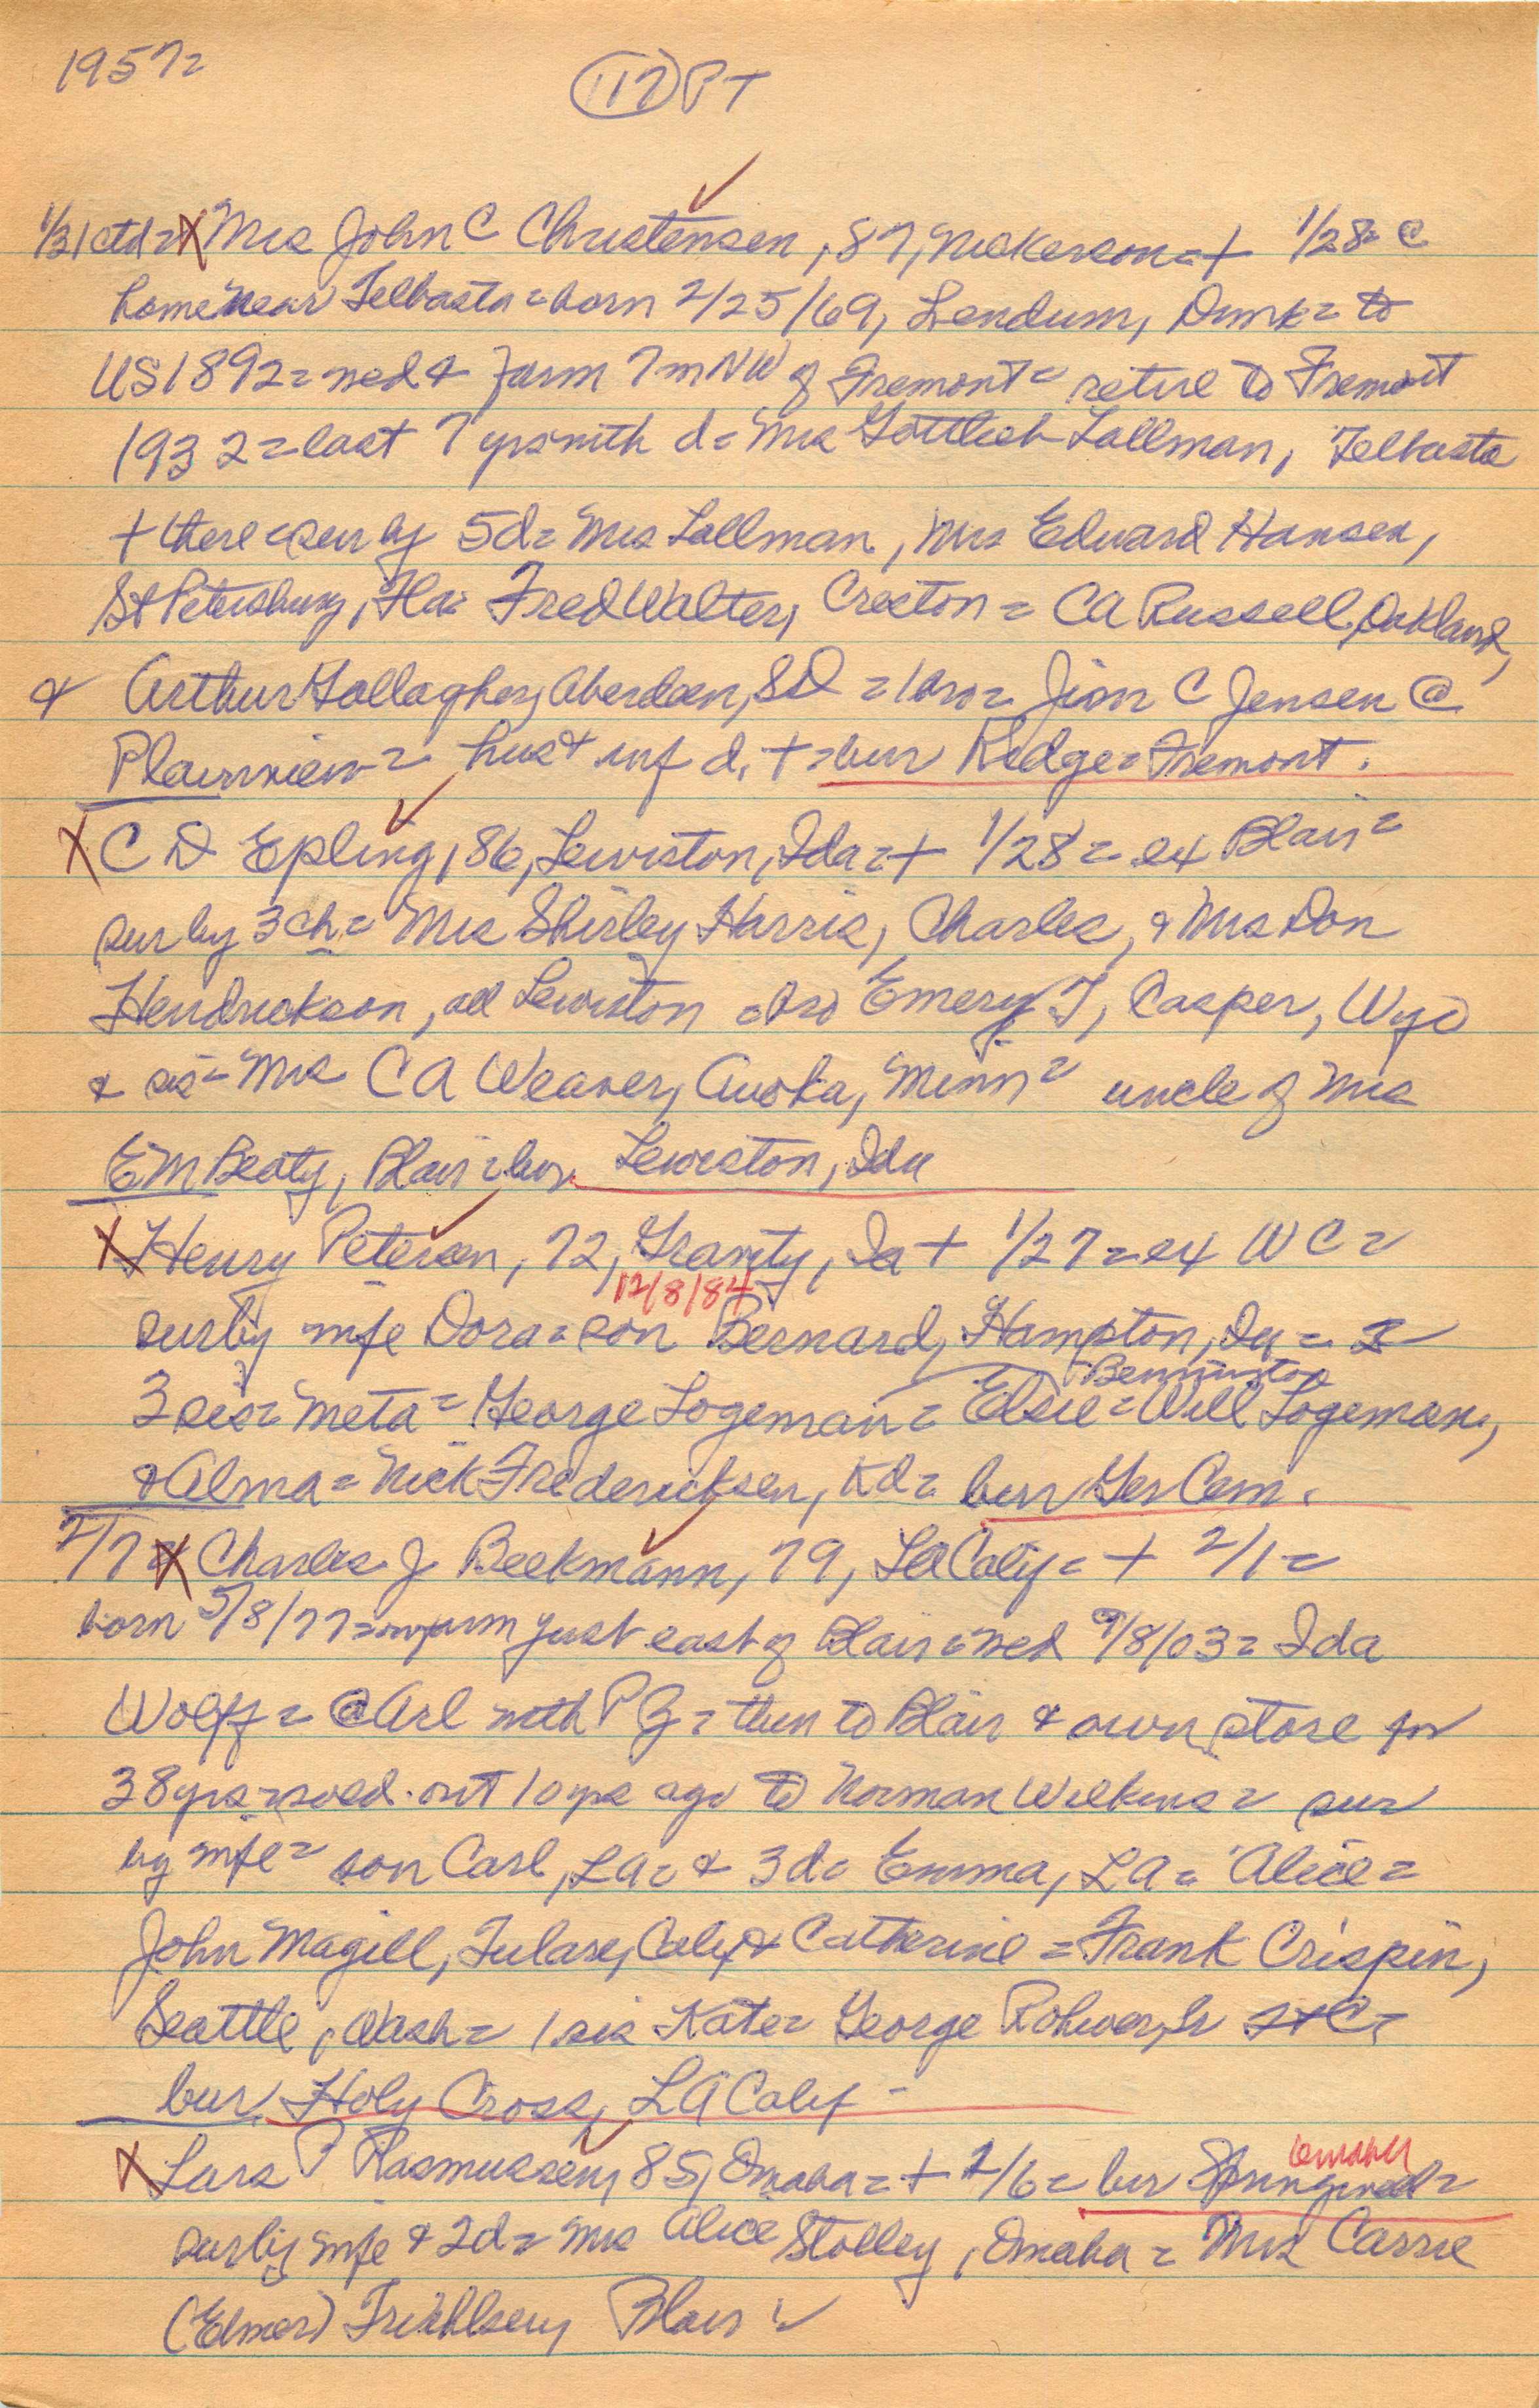 1957=
(117) PT
1/31 ctd = X Mrs John C Christensen, 87, Nickerson = + 1/28 = @
home near Telbasta = born 2/25/69, Lendum, Dmk = to
US 1892 = wed & farm 7 m NW of Fremont = retire to Fremont
1932 = last 7 yrs with d = Mrs Gottlieb Lallman, Telbasta
+ there = sur by 5d = Mrs Lallman, Mrs Edward Hansen,
St Petersburg, Fla = Fred Walter, Creston = CA Russell, Oakland,
& Arthur Gallagher, Aberdeen, SD = 1 bro = Jim C Jensen @
Plainview = hus & inf d, + = bur Ridge = Fremont.
X C D Epling, 86, Lewiston, Ida = + 1/28 = ex Blair =
sur by 3 ch = Mrs Shirley Harris, Charles, & Mrs Don
Hendrickson, all Lewiston = bro Emery T, Casper, Wyo
& sis = Mrs C A Weaver, Anoka, Minn = uncle of Mrs
E M Beaty, Blair = bur Lewiston, Ida
X Henry Petersen, 72, Gravity, Ia + 1/27 = ex W C =
12/8/84
sur by wife Dora = son Bernard, Hampton, Ia =
Bennington
3 sis = Meta = George Logeman = Elsie = Will Logeman,
& Alma = Nick Fredericksen, Kd = bur Ger Cem.
2/7 = X Charles J Beekmann, 79, LA Calif = + 2/1 =
born 5/8/77 = on farm just east of Blair = wed 9/8/03 = Ida
Wolff = @ Arl with P G = then to Blair & own store for
38 yrs = sold out 10 yrs ago to Norman Wilkins = sur
by wife = son Carl, LA = & 3d = Emma, LA = Alice =
John Magill, Tulare, Calif & Catherine = Frank Crispin,
Seattle, Wash = 1 sis Kate = George Rohwer, Sr =
bur Holy Cross, LA Calif -
X Lars P Rasmussen, 85, Omaha = + 2/6 = bur Springwell =
sur by wife & 2d = Mrs Alice Stolley, Omaha = Mrs Carrie
(Elmer) Frichlsen, Blair =